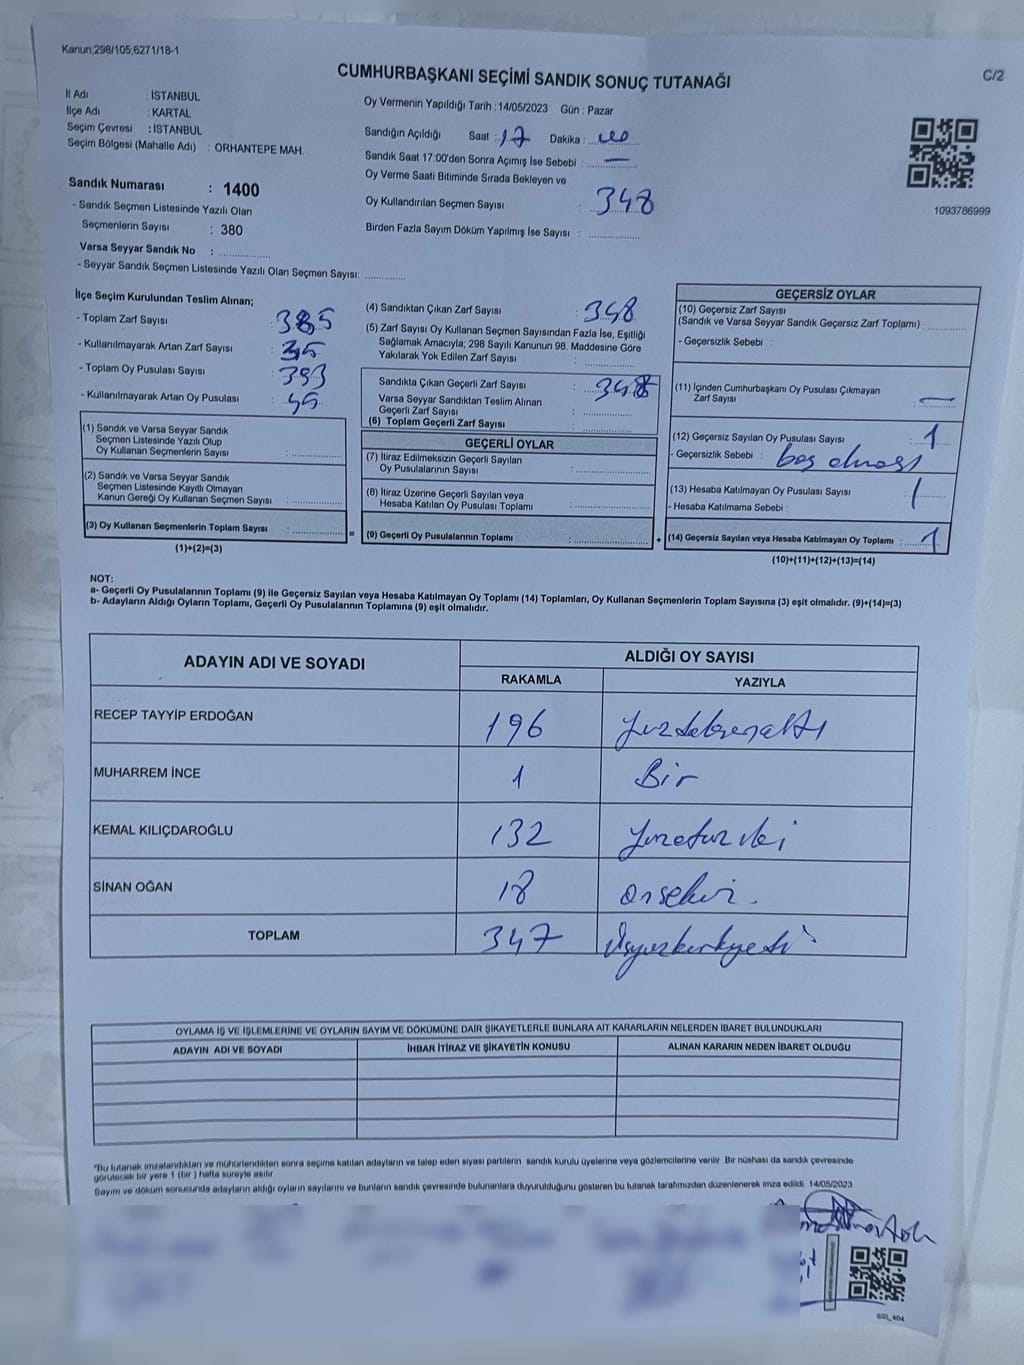 Kanun;298/105,6271/18-1
CUMHURBAŞKANI SEÇİMİ SANDIK SONUÇ TUTANAĞI
C/2
İl Adı : İSTANBUL
İlçe Adı : KARTAL
Seçim Çevresi : İSTANBUL
Seçim Bölgesi (Mahalle Adı) : ORHANTEPE MAH.
Sandık Numarası : 1400
- Sandık Seçmen Listesinde Yazılı Olan
Seçmenlerin Sayısı : 380
Varsa Seyyar Sandık No :
- Seyyar Sandık Seçmen Listesinde Yazılı Olan Seçmen Sayısı:
Oy Vermenin Yapıldığı Tarih : 14/05/2023 Gün : Pazar
Sandığın Açıldığı Saat : 17 Dakika :
Sandık Saat 17:00'den Sonra Açımış İse Sebebi : —
Oy Verme Saati Bitiminde Sırada Bekleyen ve
Oy Kullandırılan Seçmen Sayısı : 348
Birden Fazla Sayım Döküm Yapılmış İse Sayısı :
1093786999
İlçe Seçim Kurulundan Teslim Alınan;
- Toplam Zarf Sayısı : 385
- Kullanılmayarak Artan Zarf Sayısı :
- Toplam Oy Pusulası Sayısı : 393
- Kullanılmayarak Artan Oy Pusulası : 45
(1) Sandık ve Varsa Seyyar Sandık
Seçmen Listesinde Yazılı Olup
Oy Kullanan Seçmenlerin Sayısı :
(2) Sandık ve Varsa Seyyar Sandık
Seçmen Listesinde Kayıtlı Olmayan
Kanun Gereği Oy Kullanan Seçmen Sayısı :
(3) Oy Kullanan Seçmenlerin Toplam Sayısı :
(1)+(2)=(3)
=
(4) Sandıktan Çıkan Zarf Sayısı : 348
(5) Zarf Sayısı Oy Kullanan Seçmen Sayısından Fazla İse, Eşitliği
Sağlamak Amacıyla; 298 Sayılı Kanunun 98. Maddesine Göre
Yakılarak Yok Edilen Zarf Sayısı :
Sandıkta Çıkan Geçerli Zarf Sayısı : 348
Varsa Seyyar Sandıktan Teslim Alınan
Geçerli Zarf Sayısı :
(6) Toplam Geçerli Zarf Sayısı :
GEÇERLİ OYLAR
(7) İtiraz Edilmeksizin Geçerli Sayılan
Oy Pusulalarının Sayısı :
(8) İtiraz Üzerine Geçerli Sayılan veya
Hesaba Katılan Oy Pusulası Toplamı :
(9) Geçerli Oy Pusulalarının Toplamı :
+
GEÇERSİZ OYLAR
(10) Geçersiz Zarf Sayısı
(Sandık ve Varsa Seyyar Sandık Geçersiz Zarf Toplamı)
- Geçersizlik Sebebi :
(11) İçinden Cumhurbaşkanı Oy Pusulası Çıkmayan
Zarf Sayısı : —
(12) Geçersiz Sayılan Oy Pusulası Sayısı : 1
- Geçersizlik Sebebi : boş olması
(13) Hesaba Katılmayan Oy Pusulası Sayısı : 1
- Hesaba Katılmama Sebebi :
(14) Geçersiz Sayılan veya Hesaba Katılmayan Oy Toplamı : 1
(10)+(11)+(12)+(13)=(14)
NOT:
a- Geçerli Oy Pusulalarının Toplamı (9) ile Geçersiz Sayılan veya Hesaba Katılmayan Oy Toplamı (14) Toplamları, Oy Kullanan Seçmenlerin Toplam Sayısına (3) eşit olmalıdır. (9)+(14)=(3)
b- Adayların Aldığı Oyların Toplamı, Geçerli Oy Pusulalarının Toplamına (9) eşit olmalıdır.
ADAYIN ADI VE SOYADI
ALDIĞI OY SAYISI
RAKAMLA YAZIYLA
RECEP TAYYİP ERDOĞAN 196
MUHARREM İNCE 1 Bir
KEMAL KILIÇDAROĞLU 132
SİNAN OĞAN 18 onsekiz.
TOPLAM 347 Üçyüzkırkyedi
OYLAMA İŞ VE İŞLEMLERİNE VE OYLARIN SAYIM VE DÖKÜMÜNE DAİR ŞİKAYETLERLE BUNLARA AİT KARARLARIN NELERDEN İBARET BULUNDUKLARI
ADAYIN ADI VE SOYADI İHBAR İTİRAZ VE ŞİKAYETİN KONUSU ALINAN KARARIN NEDEN İBARET OLDUĞU
"Bu tutanak imzalandıktan ve mühürlendikten sonra seçime katılan adayların ve talep eden siyasi partilerin sandık kurulu üyelerine veya gözlemcilerine verilir. Bir nüshası da sandık çevresinde
görülecek bir yere 1 (bir ) hafta süreyle asılır.
Sayım ve döküm sonucunda adayların aldığı oyların sayılarını ve bunların sandık çevresinde bulunanlara duyurulduğunu gösteren bu tutanak tarafımızdan düzenlenerek imza edildi. 14/05/2023